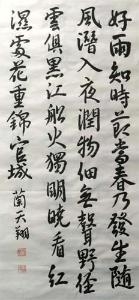 好雨知時節當春乃發生隨
風潛入夜潤物細無聲野徑
雲俱黑江船火獨明曉看紅
濕處花重錦官城 蘭天翔